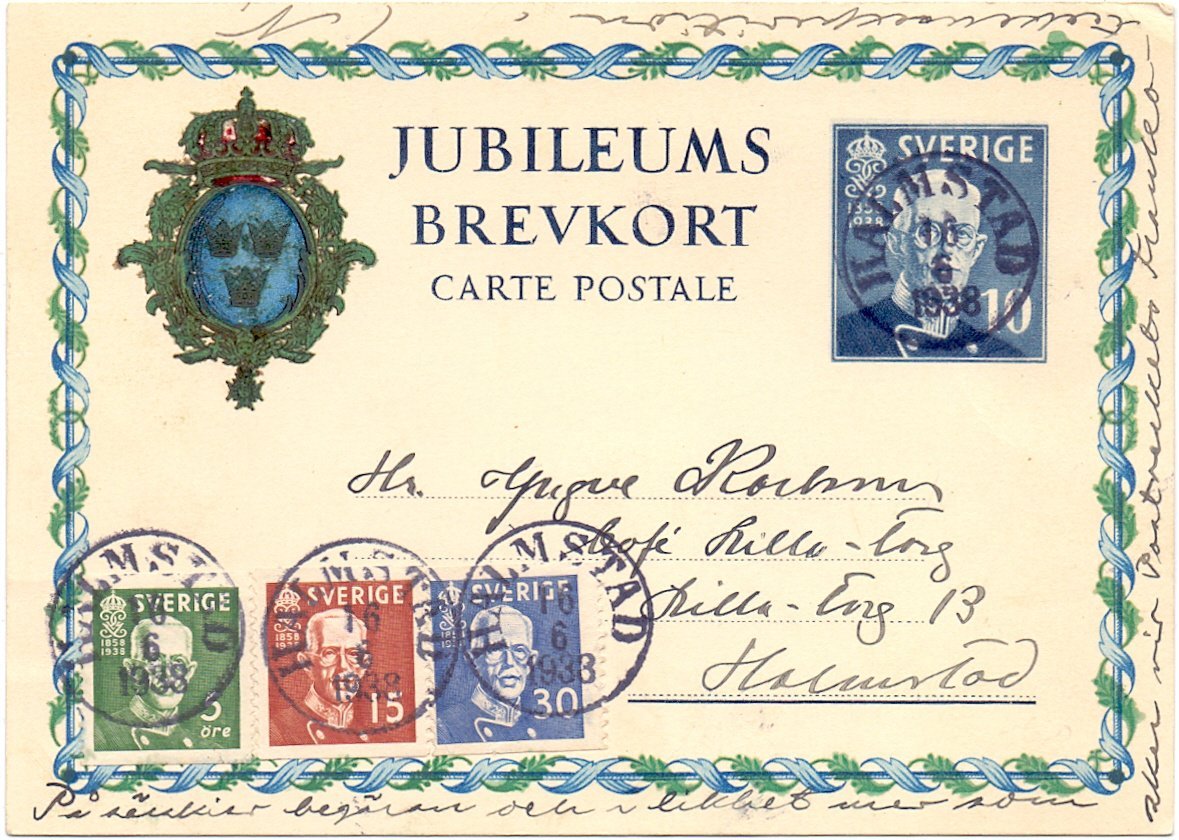 JUBILEUMS
BREVKORT
CARTE POSTALE
SVERIGE
1858
1938
10
HALMSTAD
16
6
1938
Hr. Yngve
Café Lilla-Torg
Lilla-Torg 13
Halmstad
SVERIGE
1858
1938
5
öre
HALMSTAD
16
6
1938
SVERIGE
1858
1938
15
HALMSTAD
16
6
1938
SVERIGE
1858
1938
30
HALMSTAD
16
6
1938
På särskild begäran och i likhet med som
sker vid franko